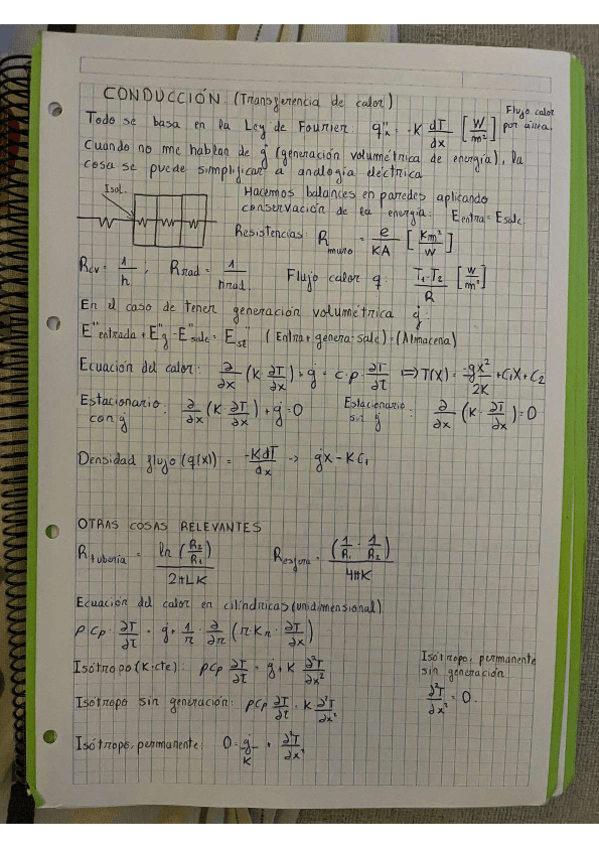 CONDUCCIÓN (Transferencia de calor)
Flujo calor
por área.
Todo se basa en la Ley de Fourier: q''x = -K dT/dx [W/m²]
Cuando no me hablan de q̇ (generación volumétrica de energía), la
cosa se puede simplificar a analogía eléctrica
Isol.
Hacemos balances en paredes aplicando
conservación de la energía: Eentra = Esale.
Resistencias: Rmuro = e/KA [Km²/W]
Rcv = 1/h ; Rrad = 1/hrad. Flujo calor q: T₁-T₂/R [W/m²]
En el caso de tener generación volumétrica q̇:
E''entrada + E''g - E''sale = E''st (Entra + genera - sale) = (Almacena)
Ecuación del calor: ∂/∂x (K · ∂T/∂x) + q̇ = c·p · ∂T/∂t ⇒ T(x) = -q̇x²/2K + C₁X + C₂
Estacionario con q̇ : ∂/∂x (K · ∂T/∂x) + q̇ = 0
Estacionario sin q̇ : ∂/∂x (K · ∂T/∂x) = 0
Densidad flujo (q(x)) = -KdT/dx → q̇x - KC₁
OTRAS COSAS RELEVANTES
Rtubería = ln (R₂/R₁)/2πLK
Resfera = (1/R₁ - 1/R₂)/4πK
Ecuación del calor en cilíndricas (unidimensional)
ρ Cp · ∂T/∂t = q̇ + 1/r · ∂/∂r (r Kr · ∂T/∂x)
Isótropo (K=cte): ρCp ∂T/∂t = q̇ + K ∂²T/∂x²
Isótropo, permanente
sin generación
∂²T/∂x² = 0.
Isótropo sin generación: ρCp ∂T/∂t = K ∂²T/∂x²
Isótropo, permanente: 0 = q̇/K + ∂²T/∂x²